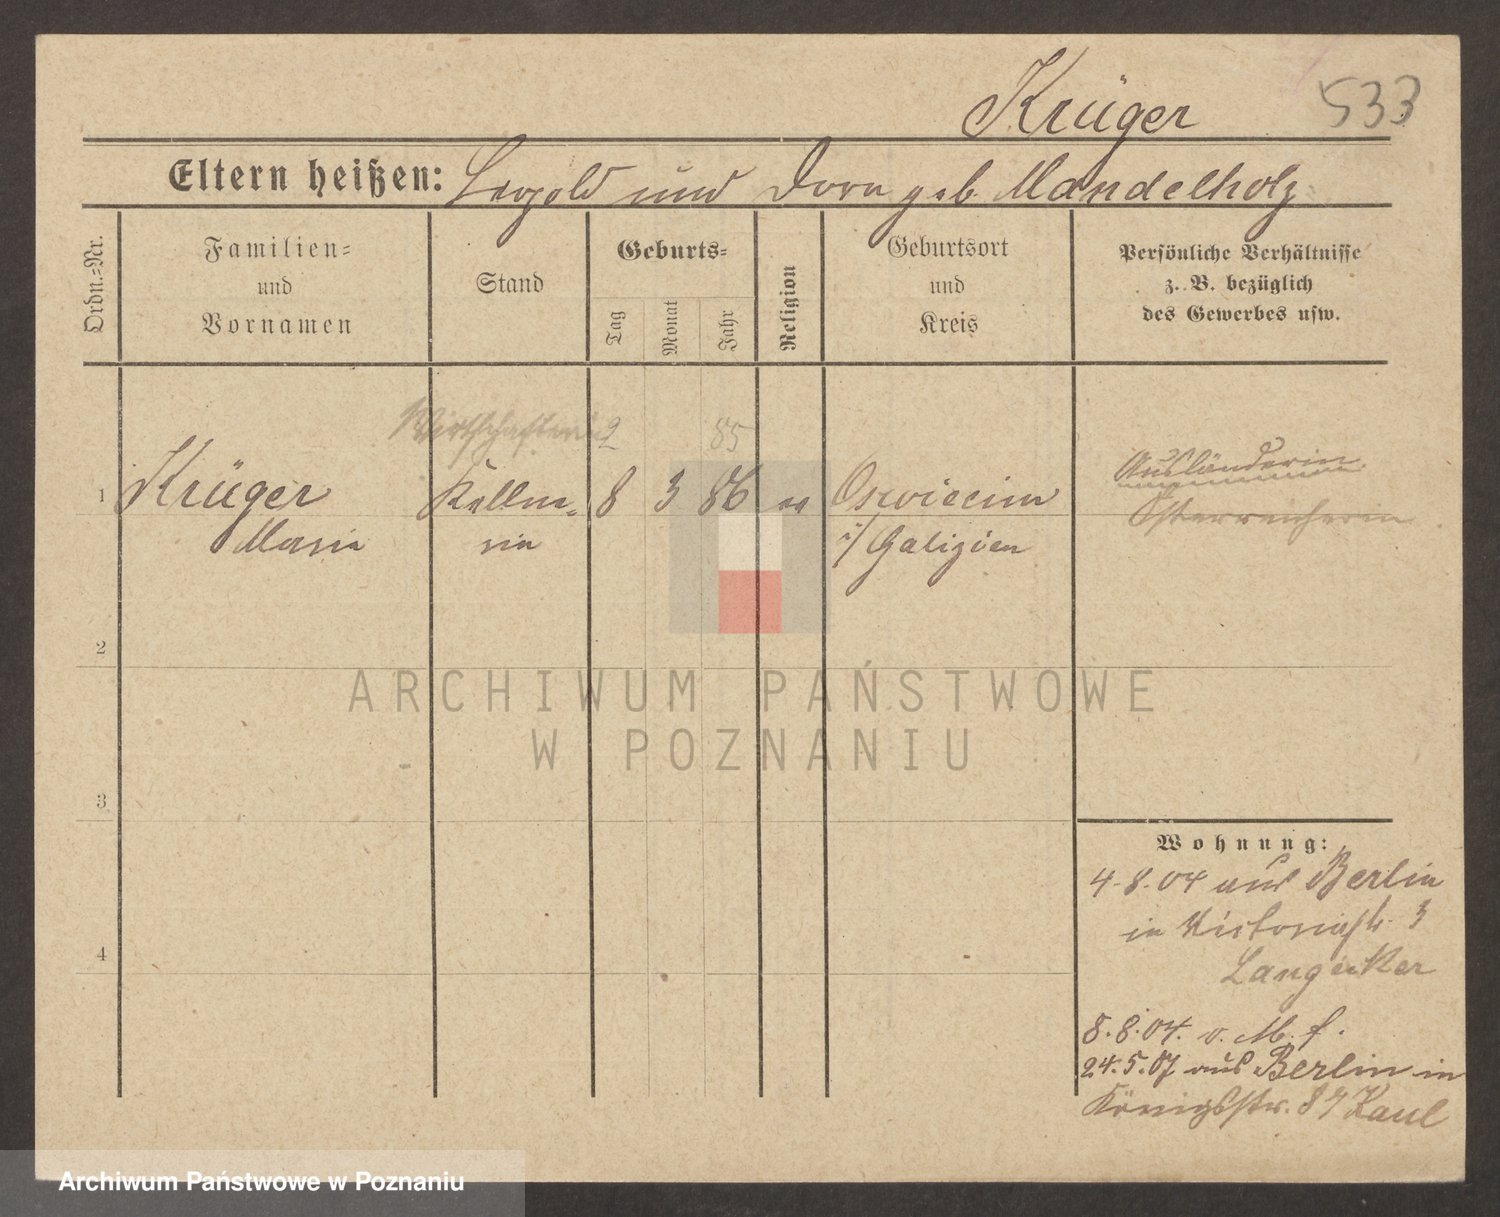 Krüger 533
Eltern heißen: Leopold und Dora geb. Mandelholz
Ordn.=Nr.
Familien=
und
Vornamen
Stand
Geburts=
Tag
Monat
Jahr
Religion
Geburtsort
und
Kreis
Persönliche Verhältnisse
z. B. bezüglich
des Gewerbes usw.
Wirtschafterin 2 85
1 Krüger Kellne- 8 3 86 Oswiecim
Maria rin i/ Galizien
Ausländerin
Österreicherin
2
ARCHIWUM PAŃSTWOWE
W POZNANIU
3
Wohnung:
4.8.04 aus Berlin
in Victoriastr. 3
4
8.8.04. v. M. f.
24.5.07 aus Berlin in
Königsstr. Kaul
Archiwum Państwowe w Poznaniu